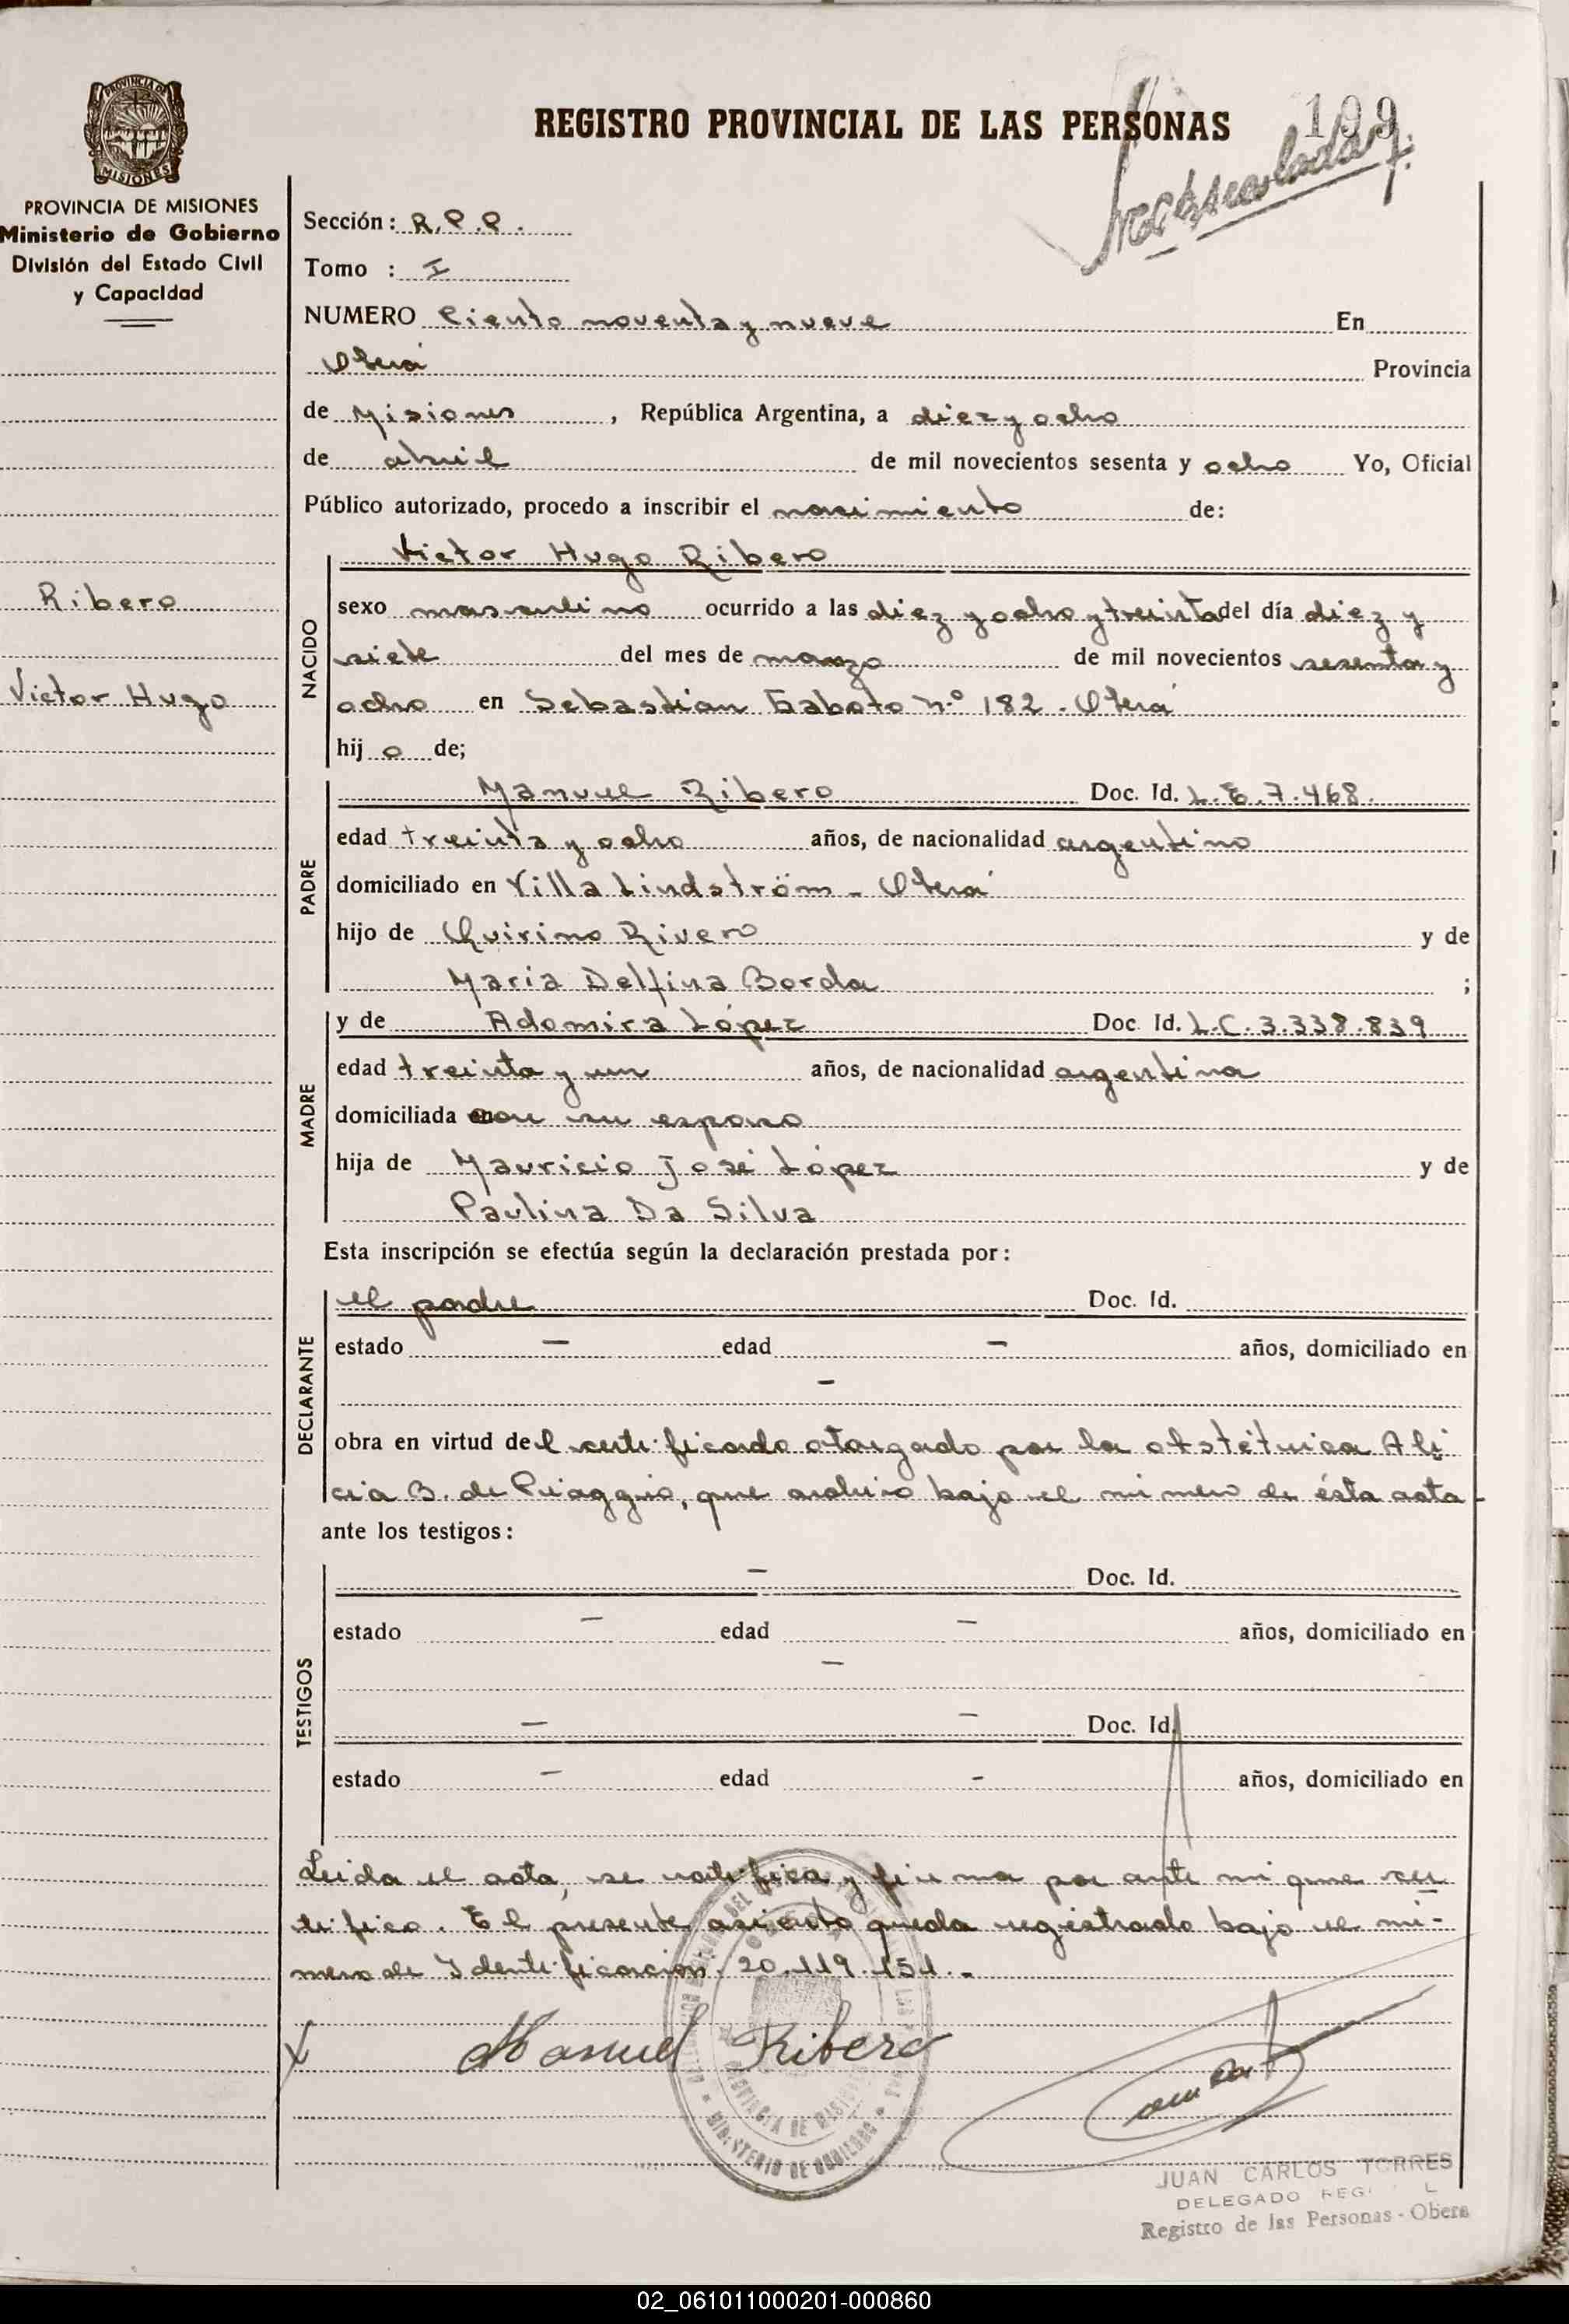 REGISTRO PROVINCIAL DE LAS PERSONAS
199
PROVINCIA DE
MISIONES
PROVINCIA DE MISIONES
Ministerio de Gobierno
División del Estado Civil
y Capacidad
Ribero
Victor Hugo
Sección: R.P.P.
Tomo : I
NUMERO Ciento noventa y nueve En
Oberá Provincia
de Misiones, República Argentina, a diez y ocho
de abril de mil novecientos sesenta y ocho Yo, Oficial
Público autorizado, procedo a inscribir el nacimiento de:
NACIDO
Victor Hugo Ribero
sexo masculino ocurrido a las diez y ocho y treinta del día diez y
siete del mes de marzo de mil novecientos sesenta y
ocho en Sebastian Gaboto N.º 182 - Oberá
hijo de;
PADRE
Manuel Ribero Doc. Id. L.E.7.468.
edad treinta y ocho años, de nacionalidad argentino
domiciliado en Villa Lindström - Oberá
hijo de Quirino Rivero y de
Maria Delfina Borda ;
MADRE
y de Adomira López Doc. Id. L.C.3.338.839
edad treinta y un años, de nacionalidad argentina
domiciliada con su esposo
hija de Mauricio José López y de
Paulina Da Silva
Esta inscripción se efectúa según la declaración prestada por:
DECLARANTE
el padre Doc. Id.
estado - edad - años, domiciliado en
-
obra en virtud del certificado otorgado por la obstétrica Ali
cia B. de Piaggio, que archivo bajo el número de ésta acta
ante los testigos:
TESTIGOS
- Doc. Id.
estado - edad - años, domiciliado en
-
- - Doc. Id.
estado - edad - años, domiciliado en
Leida el acta, se ratifica y firma por ante mi que cer
tifico. El presente asiento queda registrado bajo el nú-
mero de Identificación. 20.119.151.-
Manuel Ribero
PROVINCIA DE MISIONES
MINISTERIO DE GOBIERNO
JUAN CARLOS TORRES
DELEGADO
Registro de las Personas - Oberá
02_061011000201-000860